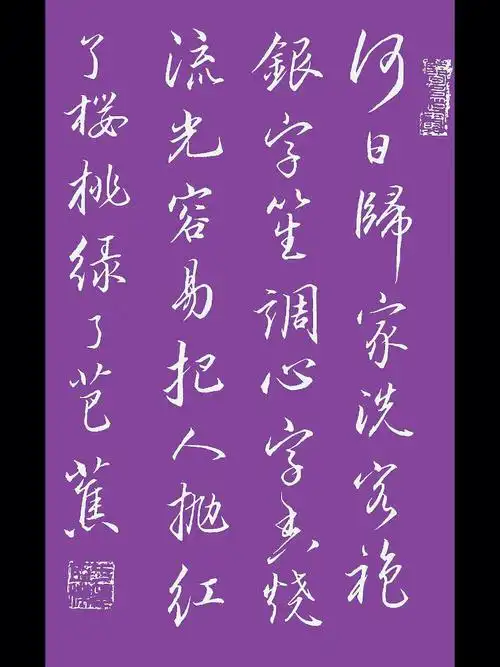 何日歸家洗客袍
銀字笙調心字香燒
流光容易把人抛紅
了桜桃绿了芭蕉